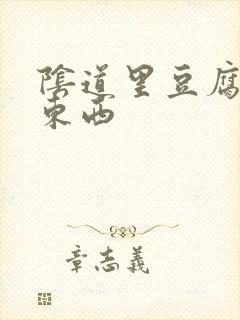 陰道里豆腐
東西
章志義